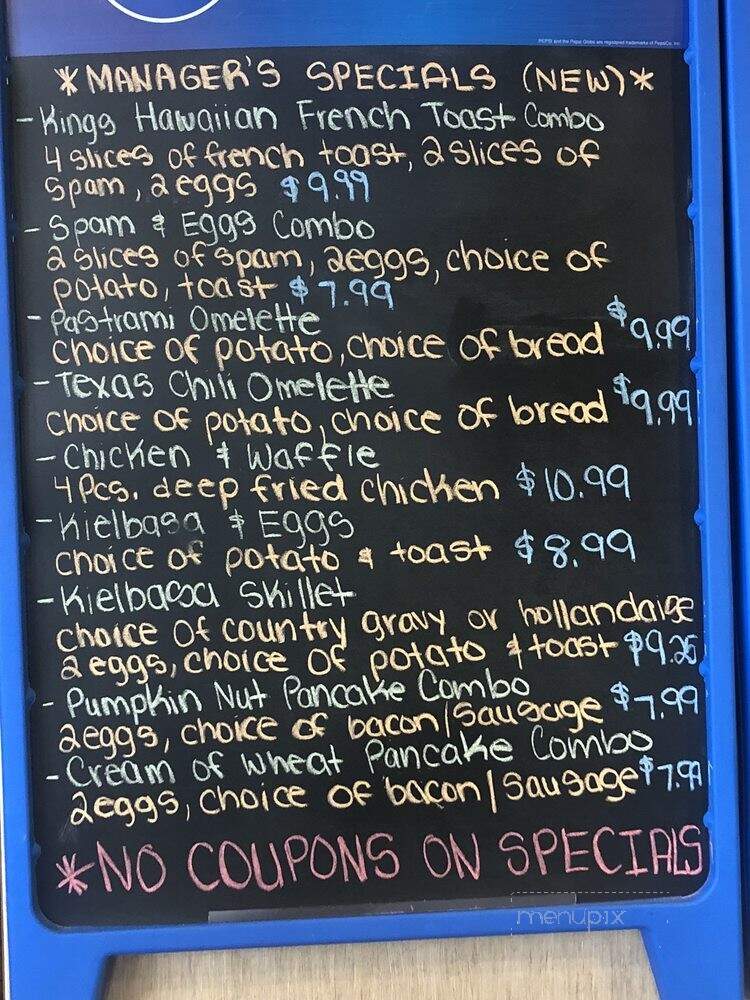 PEPSI and the Pepsi Globe are registered trademarks of PepsiCo, Inc.
*MANAGER'S SPECIALS (NEW)*
-Kings Hawaiian French Toast Combo
4 slices of french toast, 2 slices of
spam, 2 eggs $9.99
-Spam & Eggs Combo
2 slices of spam, 2eggs, choice of
potato, toast $7.99
-Pastrami Omelette
choice of potato, choice of bread $9.99
-Texas Chili Omelette
choice of potato, choice of bread $9.99
-Chicken & Waffle
4 Pcs. deep fried chicken $10.99
-Kielbasa & Eggs
choice of potato & toast $8.99
-Kielbasa Skillet
choice of country gravy or hollandaise
2 eggs, choice of potato & toast $9.25
-Pumpkin Nut Pancake Combo
2eggs, choice of bacon/sausage $7.99
-Cream of Wheat Pancake Combo
2eggs, choice of bacon/sausage $7.99
*NO COUPONS ON SPECIALS
menupix